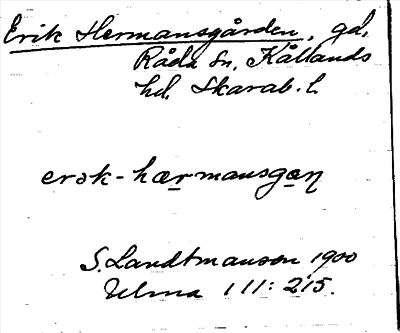 Erik Hermansgården, gd.
Råda sn. Kållands
hd. Skarab. l.
erək-hærmansgaŋ
S. Landtmanson 1900
Ulma 111:215.